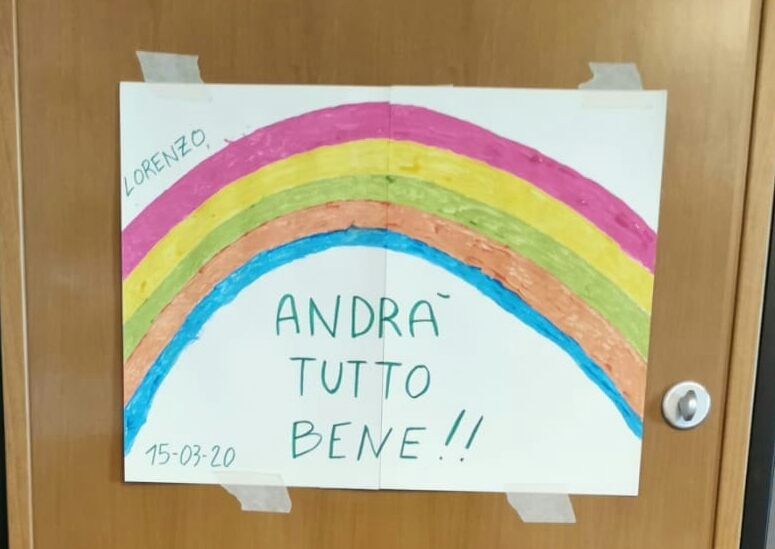 LORENZO
ANDRÀ
TUTTO
BENE!!
15-03-20